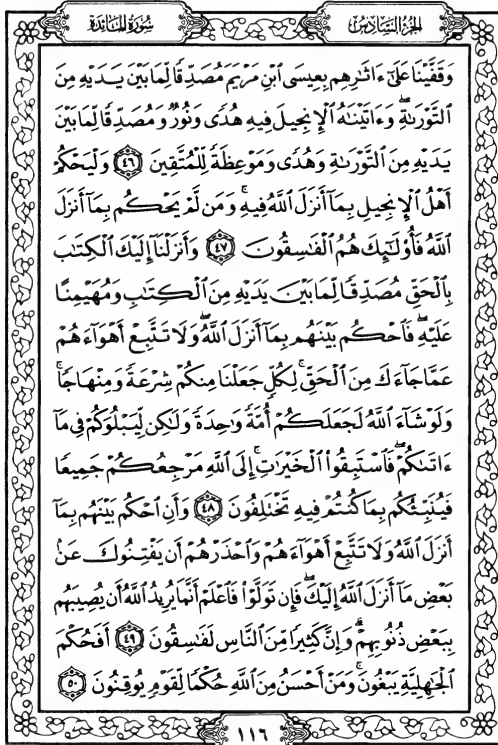 سُورَةُ المَائِدَة
الجُزْءُ السَّادِسُ
وَقَفَّيْنَا عَلَىٰٓ ءَاثَٰرِهِم بِعِيسَى ٱبْنِ مَرْيَمَ مُصَدِّقًا لِّمَا بَيْنَ يَدَيْهِ مِنَ
ٱلتَّوْرَىٰةِۖ وَءَاتَيْنَٰهُ ٱلْإِنجِيلَ فِيهِ هُدًى وَنُورٌ وَمُصَدِّقًا لِّمَا بَيْنَ
يَدَيْهِ مِنَ ٱلتَّوْرَىٰةِ وَهُدًى وَمَوْعِظَةً لِّلْمُتَّقِينَ ٤٦ وَلْيَحْكُمْ
أَهْلُ ٱلْإِنجِيلِ بِمَآ أَنزَلَ ٱللَّهُ فِيهِۚ وَمَن لَّمْ يَحْكُم بِمَآ أَنزَلَ
ٱللَّهُ فَأُو۟لَٰٓئِكَ هُمُ ٱلْفَٰسِقُونَ ٤٧ وَأَنزَلْنَآ إِلَيْكَ ٱلْكِتَٰبَ
بِٱلْحَقِّ مُصَدِّقًا لِّمَا بَيْنَ يَدَيْهِ مِنَ ٱلْكِتَٰبِ وَمُهَيْمِنًا
عَلَيْهِۖ فَٱحْكُم بَيْنَهُم بِمَآ أَنزَلَ ٱللَّهُۖ وَلَا تَتَّبِعْ أَهْوَآءَهُمْ
عَمَّا جَآءَكَ مِنَ ٱلْحَقِّۚ لِكُلٍّ جَعَلْنَا مِنكُمْ شِرْعَةً وَمِنْهَاجًاۚ
وَلَوْ شَآءَ ٱللَّهُ لَجَعَلَكُمْ أُمَّةً وَٰحِدَةً وَلَٰكِن لِّيَبْلُوَكُمْ فِى مَآ
ءَاتَىٰكُمْۖ فَٱسْتَبِقُوا۟ ٱلْخَيْرَٰتِۚ إِلَى ٱللَّهِ مَرْجِعُكُمْ جَمِيعًا
فَيُنَبِّئُكُم بِمَا كُنتُمْ فِيهِ تَخْتَلِفُونَ ٤٨ وَأَنِ ٱحْكُم بَيْنَهُم بِمَآ
أَنزَلَ ٱللَّهُ وَلَا تَتَّبِعْ أَهْوَآءَهُمْ وَٱحْذَرْهُمْ أَن يَفْتِنُوكَ عَنۢ
بَعْضِ مَآ أَنزَلَ ٱللَّهُ إِلَيْكَۖ فَإِن تَوَلَّوْا۟ فَٱعْلَمْ أَنَّمَا يُرِيدُ ٱللَّهُ أَن يُصِيبَهُم
بِبَعْضِ ذُنُوبِهِمْۗ وَإِنَّ كَثِيرًا مِّنَ ٱلنَّاسِ لَفَٰسِقُونَ ٤٩ أَفَحُكْمَ
ٱلْجَٰهِلِيَّةِ يَبْغُونَۚ وَمَنْ أَحْسَنُ مِنَ ٱللَّهِ حُكْمًا لِّقَوْمٍ يُوقِنُونَ ٥٠
١١٦